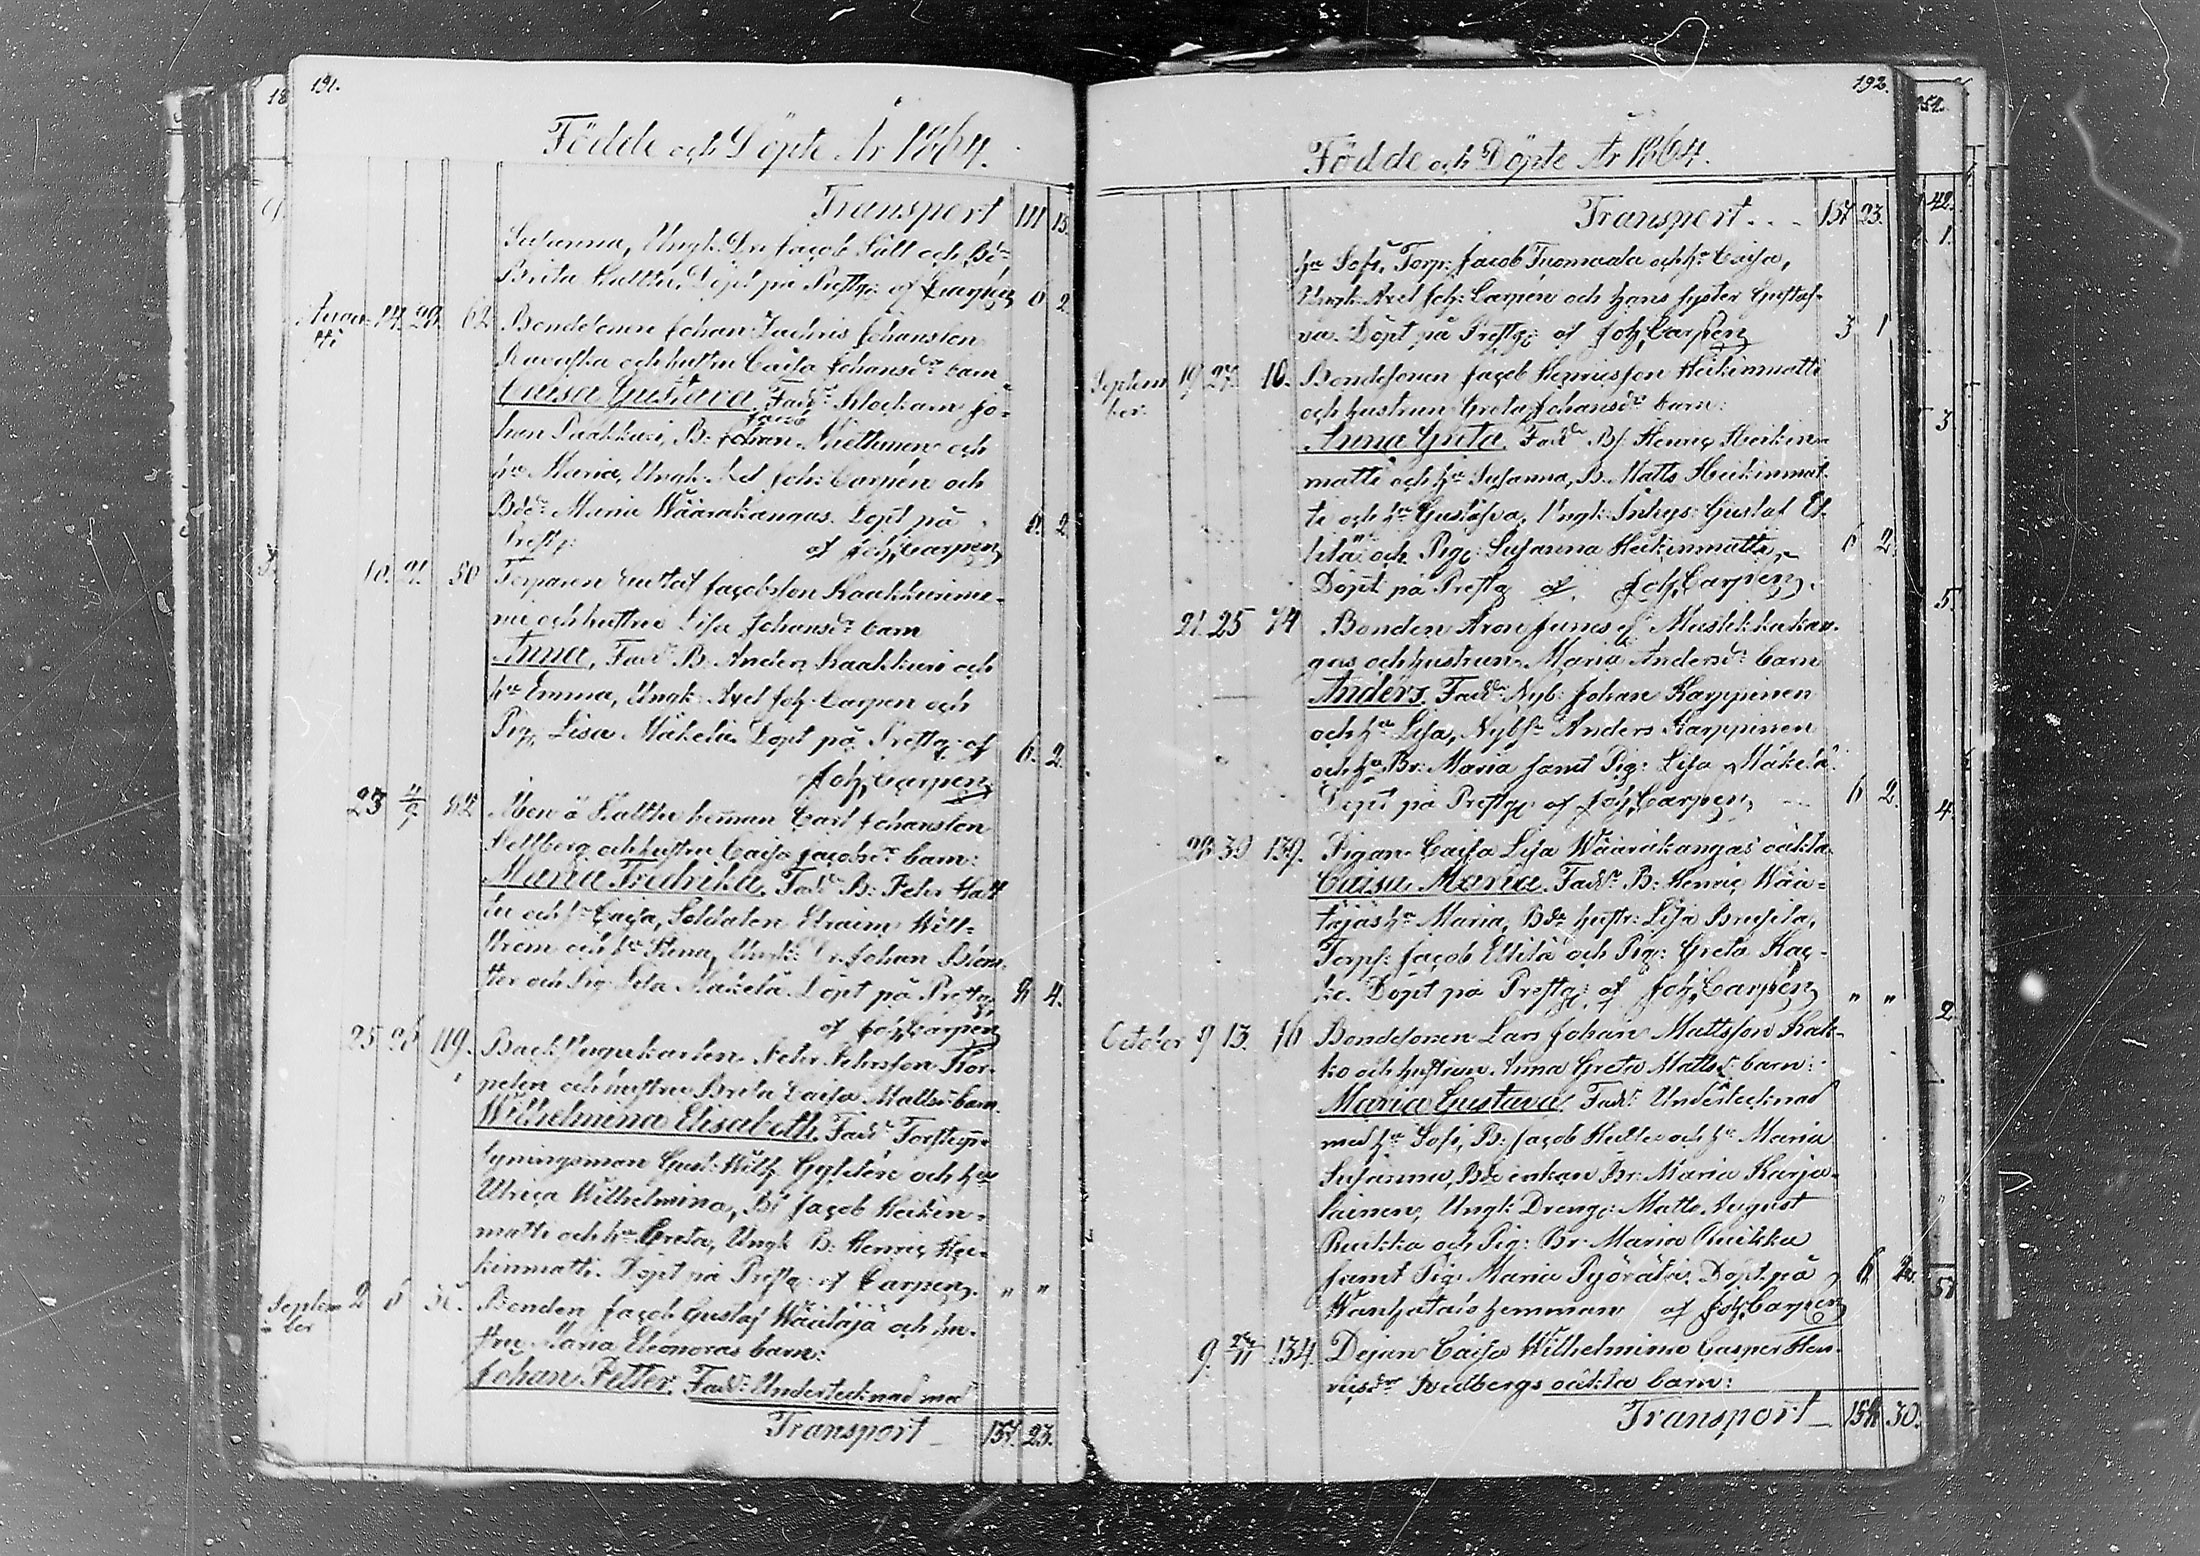 191.
Födde och Döpte År 1864.
Transport 111 15.
Susanna, Ungk. Dr. Jacob Sält och Bd:
Brita Halttu. Döpt på Prestg: af Carpen 6 2
Augu- 14. 29. 62 Bondesonen Johan Zachris Johansson
sti
och hustru Caisa Johansdr barn
Caisa Gustava. Fadd: Klockarn Jo-
han Paakkari, B: Jacob Miettunen och
hu Maria, Ungk: Axel Joh: Carpén och
Bdr: Maria Wäärakangas. Döpt på 6. 2
Prestg: af Joh, Carpen
10. 21. 50 Torparen Gustaf Jacobsson Kaakkurinie-
mi och hustru Lisa Johansdr barn
Anna, Fadd: B. Anders Kaakkuri och
hu Emma, Ungk: Axel Joh: Carpen och
Pig, Lisa Mäkelä. Döpt på Prestg: af 6. 2.
Joh, Carpen
23 4/9 82 Åboen å Halttu heman Carl Johansson
Hellberg och hustru Caisa Jacobsdr barn:
Maria Fredrika. Fadd: B: Pehr Halt
tu och hu Caisa, Soldaten Efraim Will-
ström och hu Stena, Ungk: Dr. Johan Blom-
ster och Pig: Lisa Mäkelä. Döpt på Prestg, 8 4.
af Joh, Carpen
25 28 119. Backstugukarlen Pehr Pehrsson Kor-
pelin och hustru Brita Caisa Mattsdr barn
Wilhelmina Elisabeth. Fadd: Forstupp-
syningsman Gust: Wilh. Gyldén och hu
Ulrica Wilhelmina, Bs Jacob Heikin-
matti och hu Greta, Ungk B: Henric Hei-
kinmatti. Döpt på Prestg: af Carpen. " "
Septem- 2 6 Bonden Jacob Gustaf Wäätäjä och hu-
ber
stru Maria Eleonoras barn:
Johan Petter. Fadd: Undertecknad med
Transport 137. 23.
192.
Födde och Döpte År 1864.
Transport. . . 137 23.
hu Sofi, Torp: Jacob Tuomaala och hu Caisa,
Ungk: Axel Joh: Carpen och hans syster Gustaf-
va. Döpt på Prestg: af Joh, Carpen 3 1
Septem- 19. 27. 10. Bondesonen Jacob Henricsson Heikinmatti
ber:
och hustrun Greta Johansdr barn:
Anna Greta. Fadd: Bs. Henric Heikin-
matti och hu Susanna, B. Matts Heikinmat-
ti och hu Gustafva, Ungk: Inhys: Gustaf El-
lilä och Pig: Susanna Heikinmatti, 6 2.
Döpt på Prestg af Joh, Carpen.
21. 25 74 Bonden Aron Junes af Mustikkakan-
gas och hustrun Maria Andersdr barn
Anders. Fadd: Nyb: Johan Karppinen
och hu Lisa, Nybs: Anders Karppinen
och hu Br: Maria samt Pig: Lisa Mäkelä.
Döpt på Prestg: af Joh, Carpen 6 2.
28 30 139. Pigan Caisa Lisa Wäärakangas oäkta
Caisa Maria. Fadd: B: Henric Wää-
täjäs hu Maria, Bde hustr: Lisa
Torps: Jacob Ellilä och Pig: Greta Kac-
ko. Döpt på Prestg: af Joh, Carpen " "
October 9 13. 16 Bondesonen Lars Johan Mattsson Kak-
ko och hustrun Anna Greta Mattsdr barn:
Maria Gustava. Fadd: Undertecknad
med hu Sofi, B: Jacob Hultti och hu Maria
Susanna, Bde enkan Br: Maria Karja-
lainen, Ungk: Dreng: Matts August
Ruikka och Pig: Br: Maria Ruikka
samt Pig: Maria Pyörälä. Döpt på 6 4.
Wanhatalo hemman af Joh, Carpen
9. 27/11 134. Dejan Caisa Wilhelmina Casper Hen-
ricsdr Hedbergs oäkta barn:
Transport 158 30.